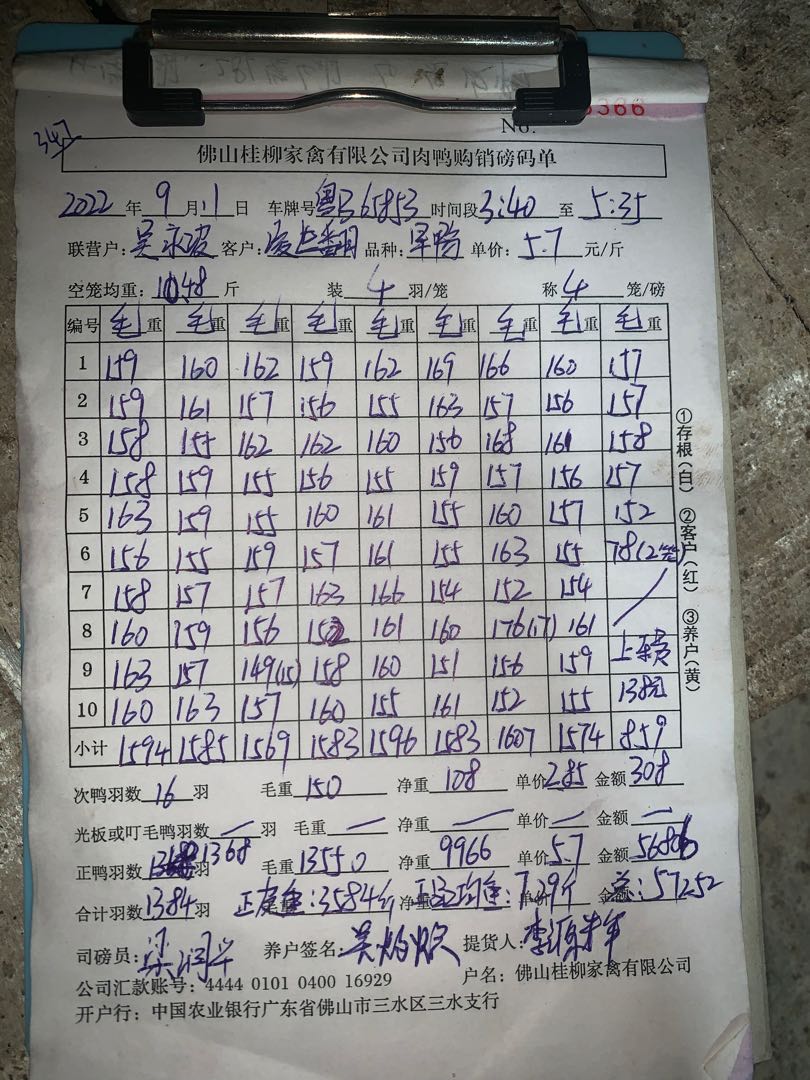 347
No. 5366
佛山桂柳家禽有限公司肉鸭购销磅码单
2022年9月11日 车牌号粤J65853时间段3:40至5:35
联营户: 客户: 品种: 单价:5.7元/斤
空笼均重:10.48斤 装4羽/笼 称4笼/磅
编号 毛重 毛重 毛重 毛重 毛重 毛重 毛重 毛重 毛重
1 159 160 162 159 162 169 166 160 157
2 159 161 157 156 155 163 157 156 157
3 158 155 162 162 160 156 168 161 158
4 158 159 155 156 155 159 157 156 157
5 163 159 155 160 161 155 160 157 152
6 156 155 159 157 161 155 163 155 78(2笼)
7 158 157 157 163 166 154 152 154
8 160 159 156 152 161 160 176(17) 161
9 163 157 149(15) 158 160 151 156 159 上车费
10 160 163 157 160 155 161 152 155 138元
小计 1594 1585 1569 1583 1596 1583 1607 1574 859
①存根(白) ②客户(红) ③养户(黄)
次鸭羽数16羽 毛重150 净重108 单价2.85 金额308
光板或叮毛鸭羽数 羽 毛重 净重 单价 金额
正鸭羽数1368羽 毛重13550 净重9966 单价5.7 金额56806
合计羽数1384羽 正皮重:3584斤 净重 正只均重:7.29斤 单价 金额 总:57252
司磅员: 养户签名: 提货人:
公司汇款账号:4444 0101 0400 16929 户名:佛山桂柳家禽有限公司
开户行:中国农业银行广东省佛山市三水区三水支行